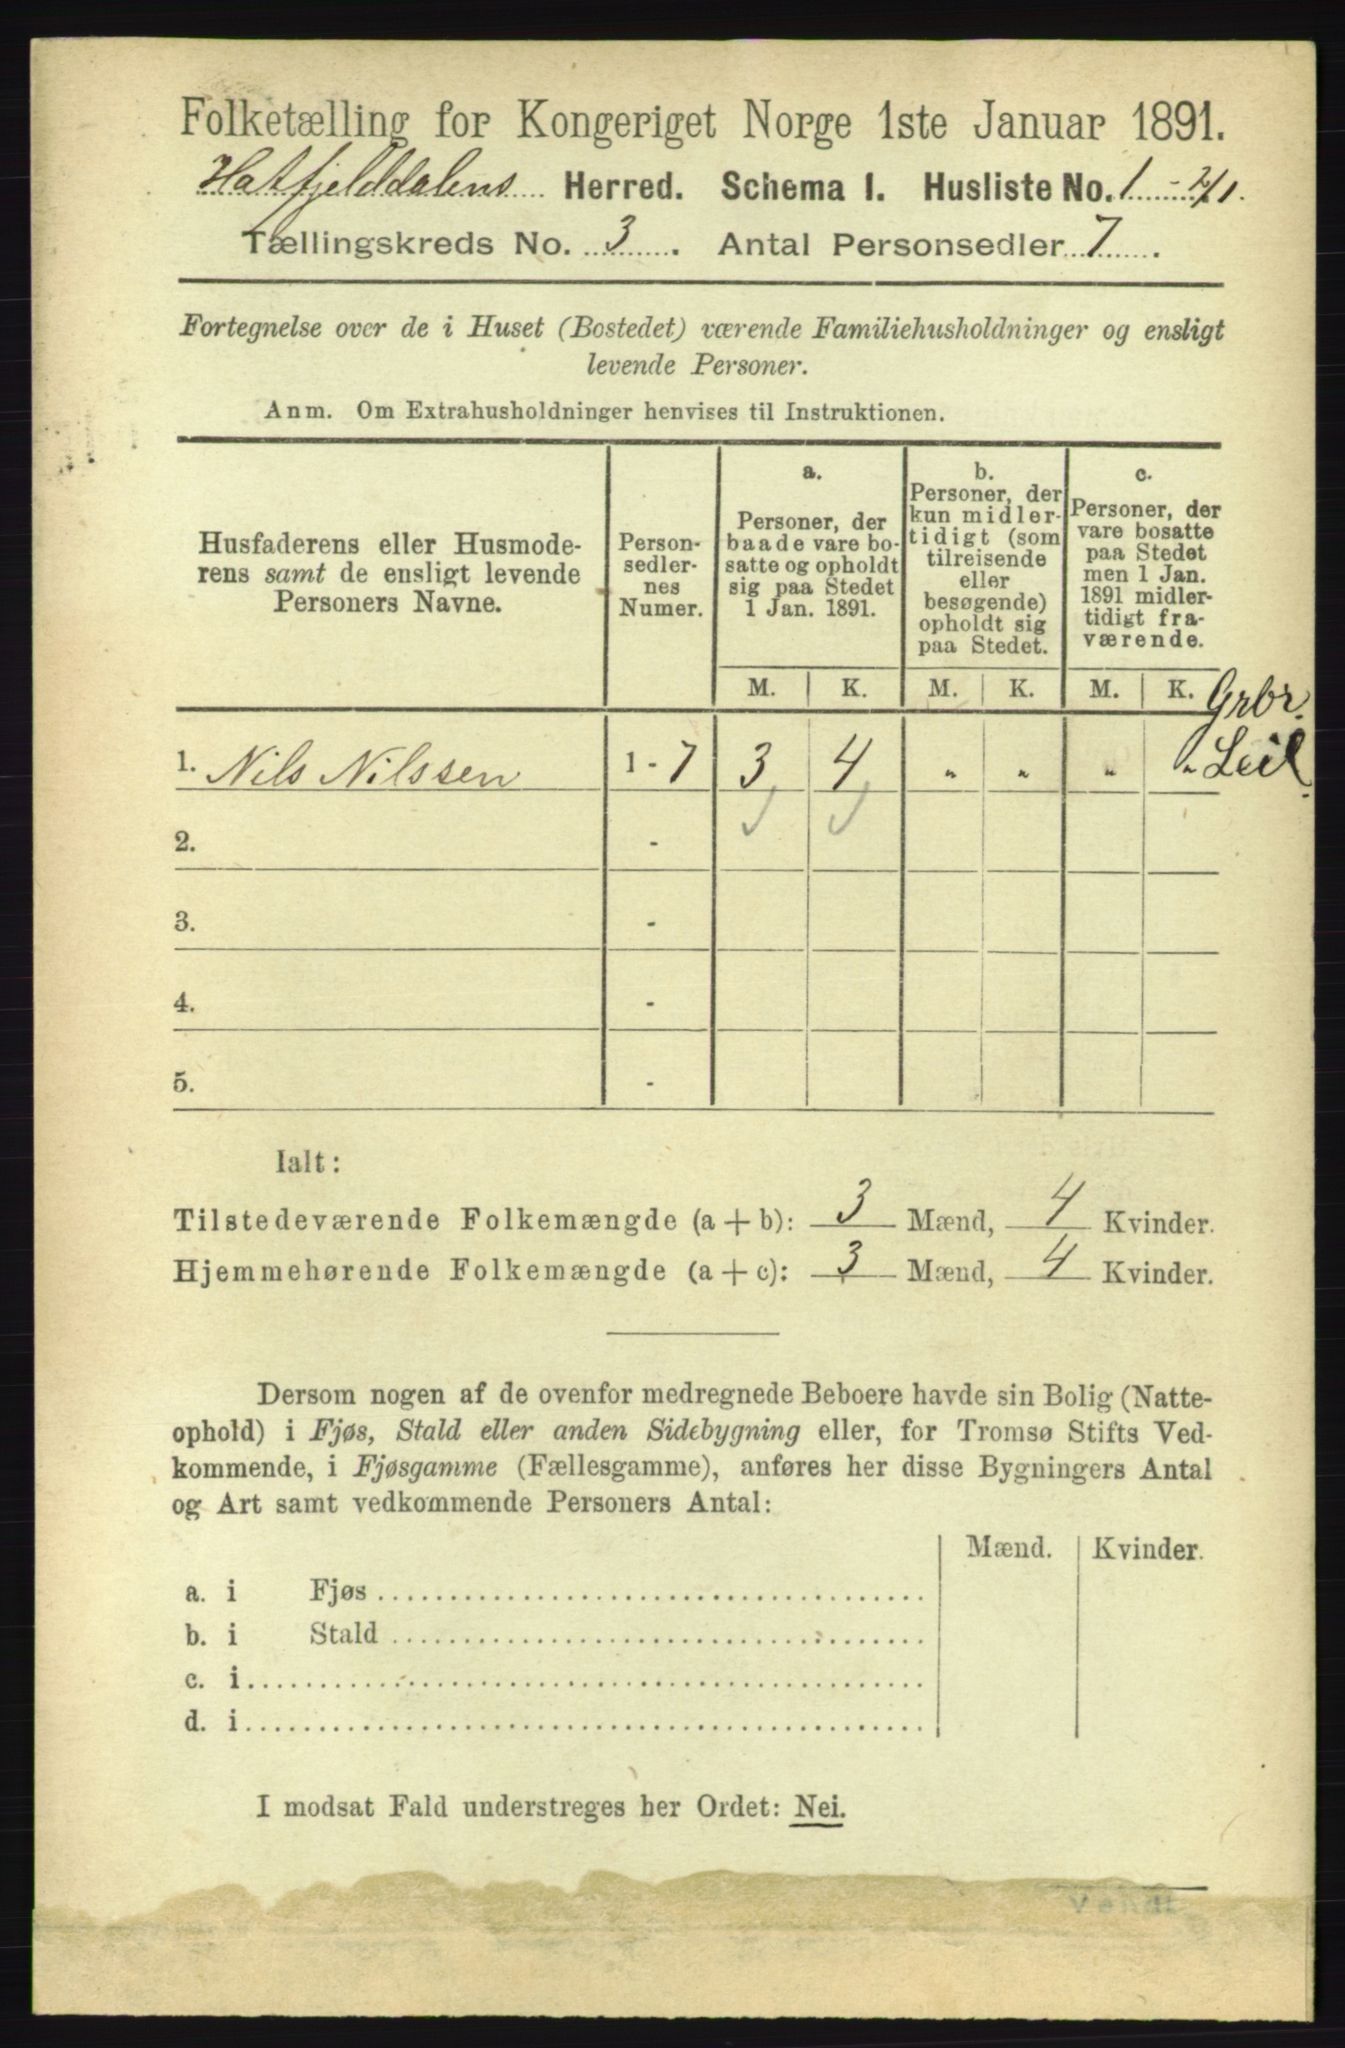 Folketælling for Kongeriget Norge 1ste Januar 1891.
Hatfjelddalens Herred. Schema I. Husliste No. 1
Tællingskreds No. 3. Antal Personsedler 7.
Fortegnelse over de i Huset (Bostedet) værende Familiehusholdninger og ensligt
levende Personer.
Anm. Om Extrahusholdninger henvises til Instruktionen.
Husfaderens eller Husmode-
rens samt de ensligt levende
Personers Navne.
Person-
sedler-
nes
Numer.
a.
Personer, der
baade vare bo-
satte og opholdt
sig paa Stedet
1 Jan. 1891.
b.
Personer, der
kun midler-
tidigt (som
tilreisende
eller
besøgende)
opholdt sig
paa Stedet.
c.
Personer, der
vare bosatte
paa Stedet
men 1 Jan.
1891 midler-
tidigt fra-
værende.
M. K. M. K. M. K.
Grbr.
1. Nils Nilssen 1 - 7 3 4 „ „ „ „ Leil.
2. -
3. -
4. -
5. -
Ialt:
Tilstedeværende Folkemængde (a + b): 3 Mænd, 4 Kvinder.
Hjemmehørende Folkemængde (a + c): 3 Mænd, 4 Kvinder.
Dersom nogen af de ovenfor medregnede Beboere havde sin Bolig (Natte-
ophold) i Fjøs, Stald eller anden Sidebygning eller, for Tromsø Stifts Ved-
kommende, i Fjøsgamme (Fællesgamme), anføres her disse Bygningers Antal
og Art samt vedkommende Personers Antal:
Mænd. Kvinder.
a. i Fjøs
b. i Stald
c. i
d. i
I modsat Fald understreges her Ordet: Nei.
Vendt